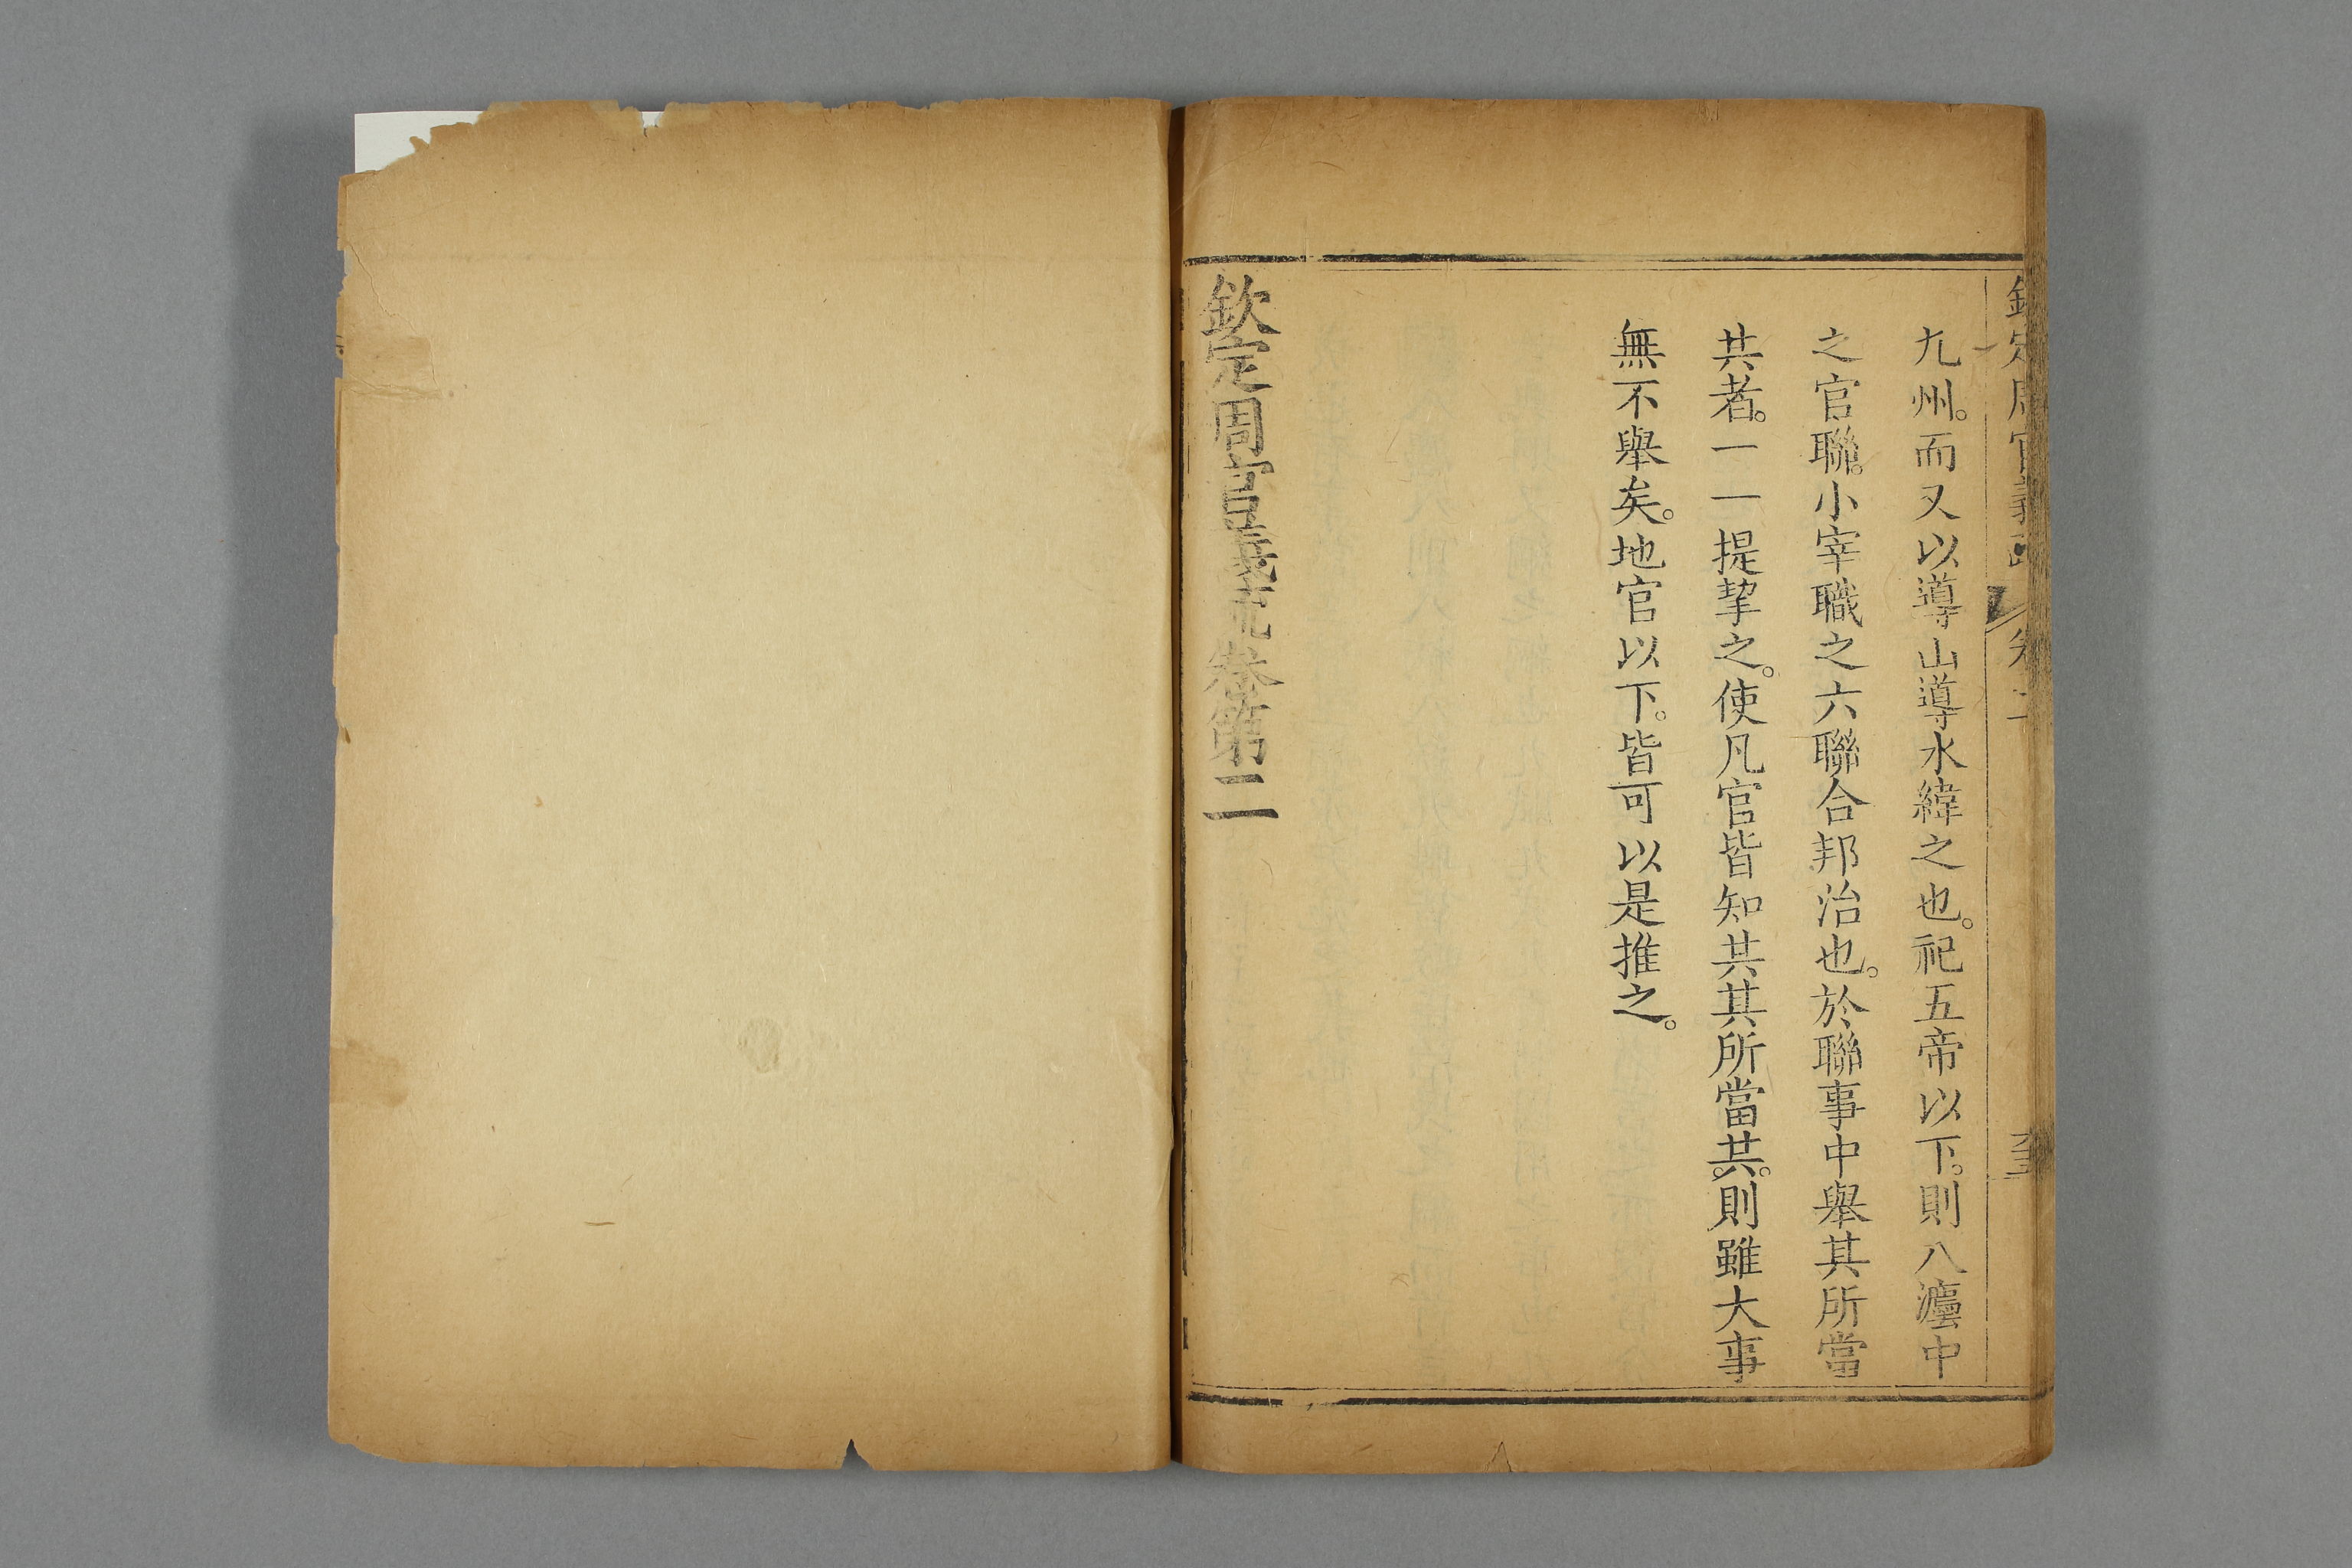 九州。而又以導山導水緯之也。祀五帝以下。則八灋中
之官聯。小宰職之六聯合邦治也。於聯事中舉其所當
共者。一一提挈之。使凡官皆知共其所當共。則雖大事
無不舉矣。地官以下。皆可以是推之。
欽定周官義疏卷第二